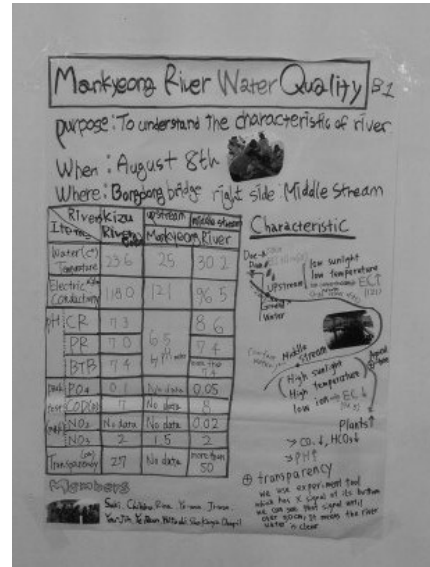 Mankyeong River Water Quality B1
purpose: To understand the characteristic of river
When: August 8th
Where: Bongdong bridge right side Middle Stream
River Kizu River upstream middle stream
Items Mankyeong River
Water (C°) Temperature 23.6 25 30.2
Electric Conductivity 118.0 121 96.5
pH CR 7.3 6.5 by PH meter 8.6
PR 7.0 7.4
BTB 7.4 more than 7.4
pack test PO4 0.1 No data 0.05
COD 7 No data 8
NO2 No data No data 0.02
NO3 2 1.5 2
Transparency (cm) 27 No data more than 50
Members
Characteristic
Upstream
low sunlight
low temperature
EC↑
(121)
Ground Water
Middle Stream
High sunlight
High temperature
low ion → EC↓
Plants↑
→ CO2↓, HCO3↓
→ PH↑
⊕ transparency
we use experiment tool
which has X signal at its bottom
we can see that signal until
over 50cm, It means the river
water is clear